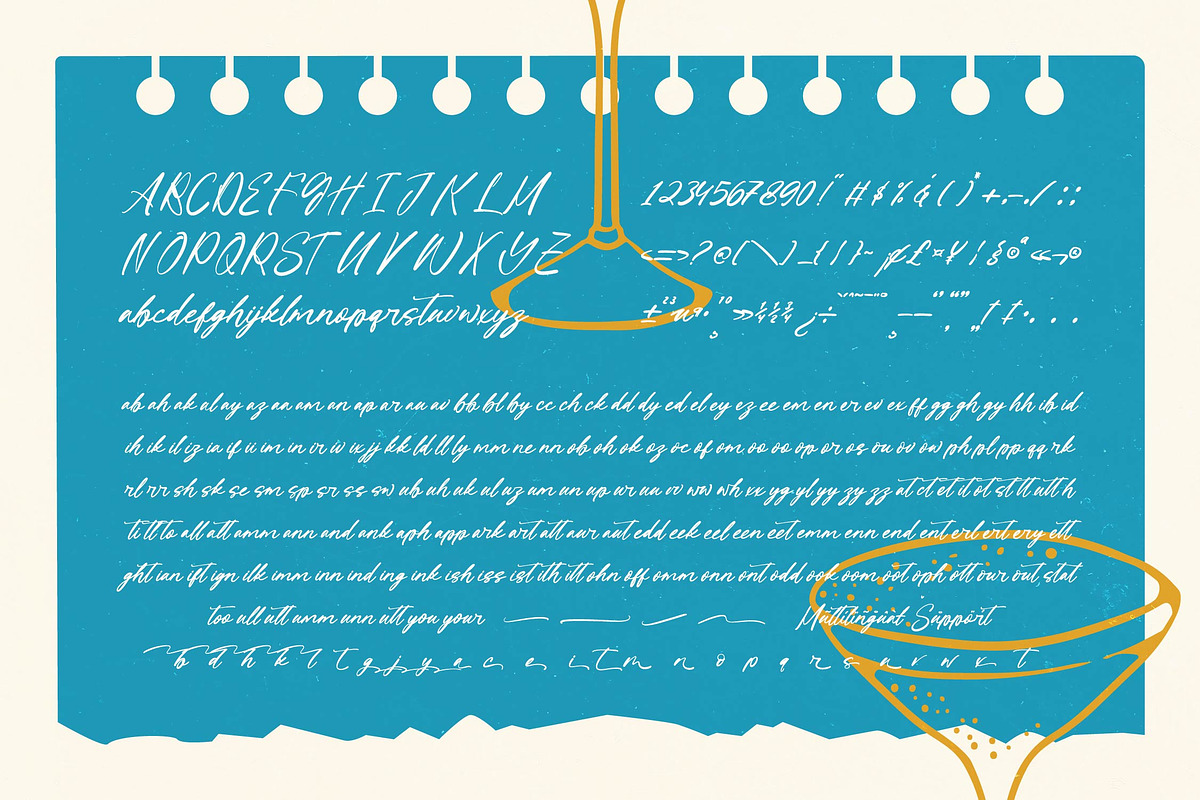 ABCDEFGHIJKLM
NOPQRSTUVWXYZ
abcdefghijklmnopqrstuvwxyz
1234567890!" #$%&'()*+,-./:;
<=>?@[\]_{|}~¡¢£¤¥¦§©ª«¬®
±²³µ¹º»¼½¾¿÷ – — ‘ ’ ‚ “ ” „ † ‡ • . . .
ab ah ak al ay az aa am an ap ar au av bb bl by cc ch ck dd dy ed el ey ez ee em en er ev ex ff gg gh gy hh ib id
ih ik il iz ia if ii im in ir iv ix jj kk ld ll ly mm ne nn ob oh ok oz oc of om oo oo op or os ou ov ow ph pl pp qq rk
rl rr sh sk se sm sp sr ss sw ub uh uk ul uz um un up ur uu vv ww wh xx yg yl yy zy zz at ct et it ot st tt utt h
ti tt to all att amm ann and ank aph app ark art att aur aut edd eek eel een eet emm enn end ent erl ert ery ett
ght ian ift ign ilk imm inn ind ing ink ish iss ist ith itt ohn off omm onn ont odd ook oom oot oph ott our out, stat
too ull utt umm unn utt you your Multilingual Support
b d h k l t g j y a c e i t m n o p q r s u v w x t